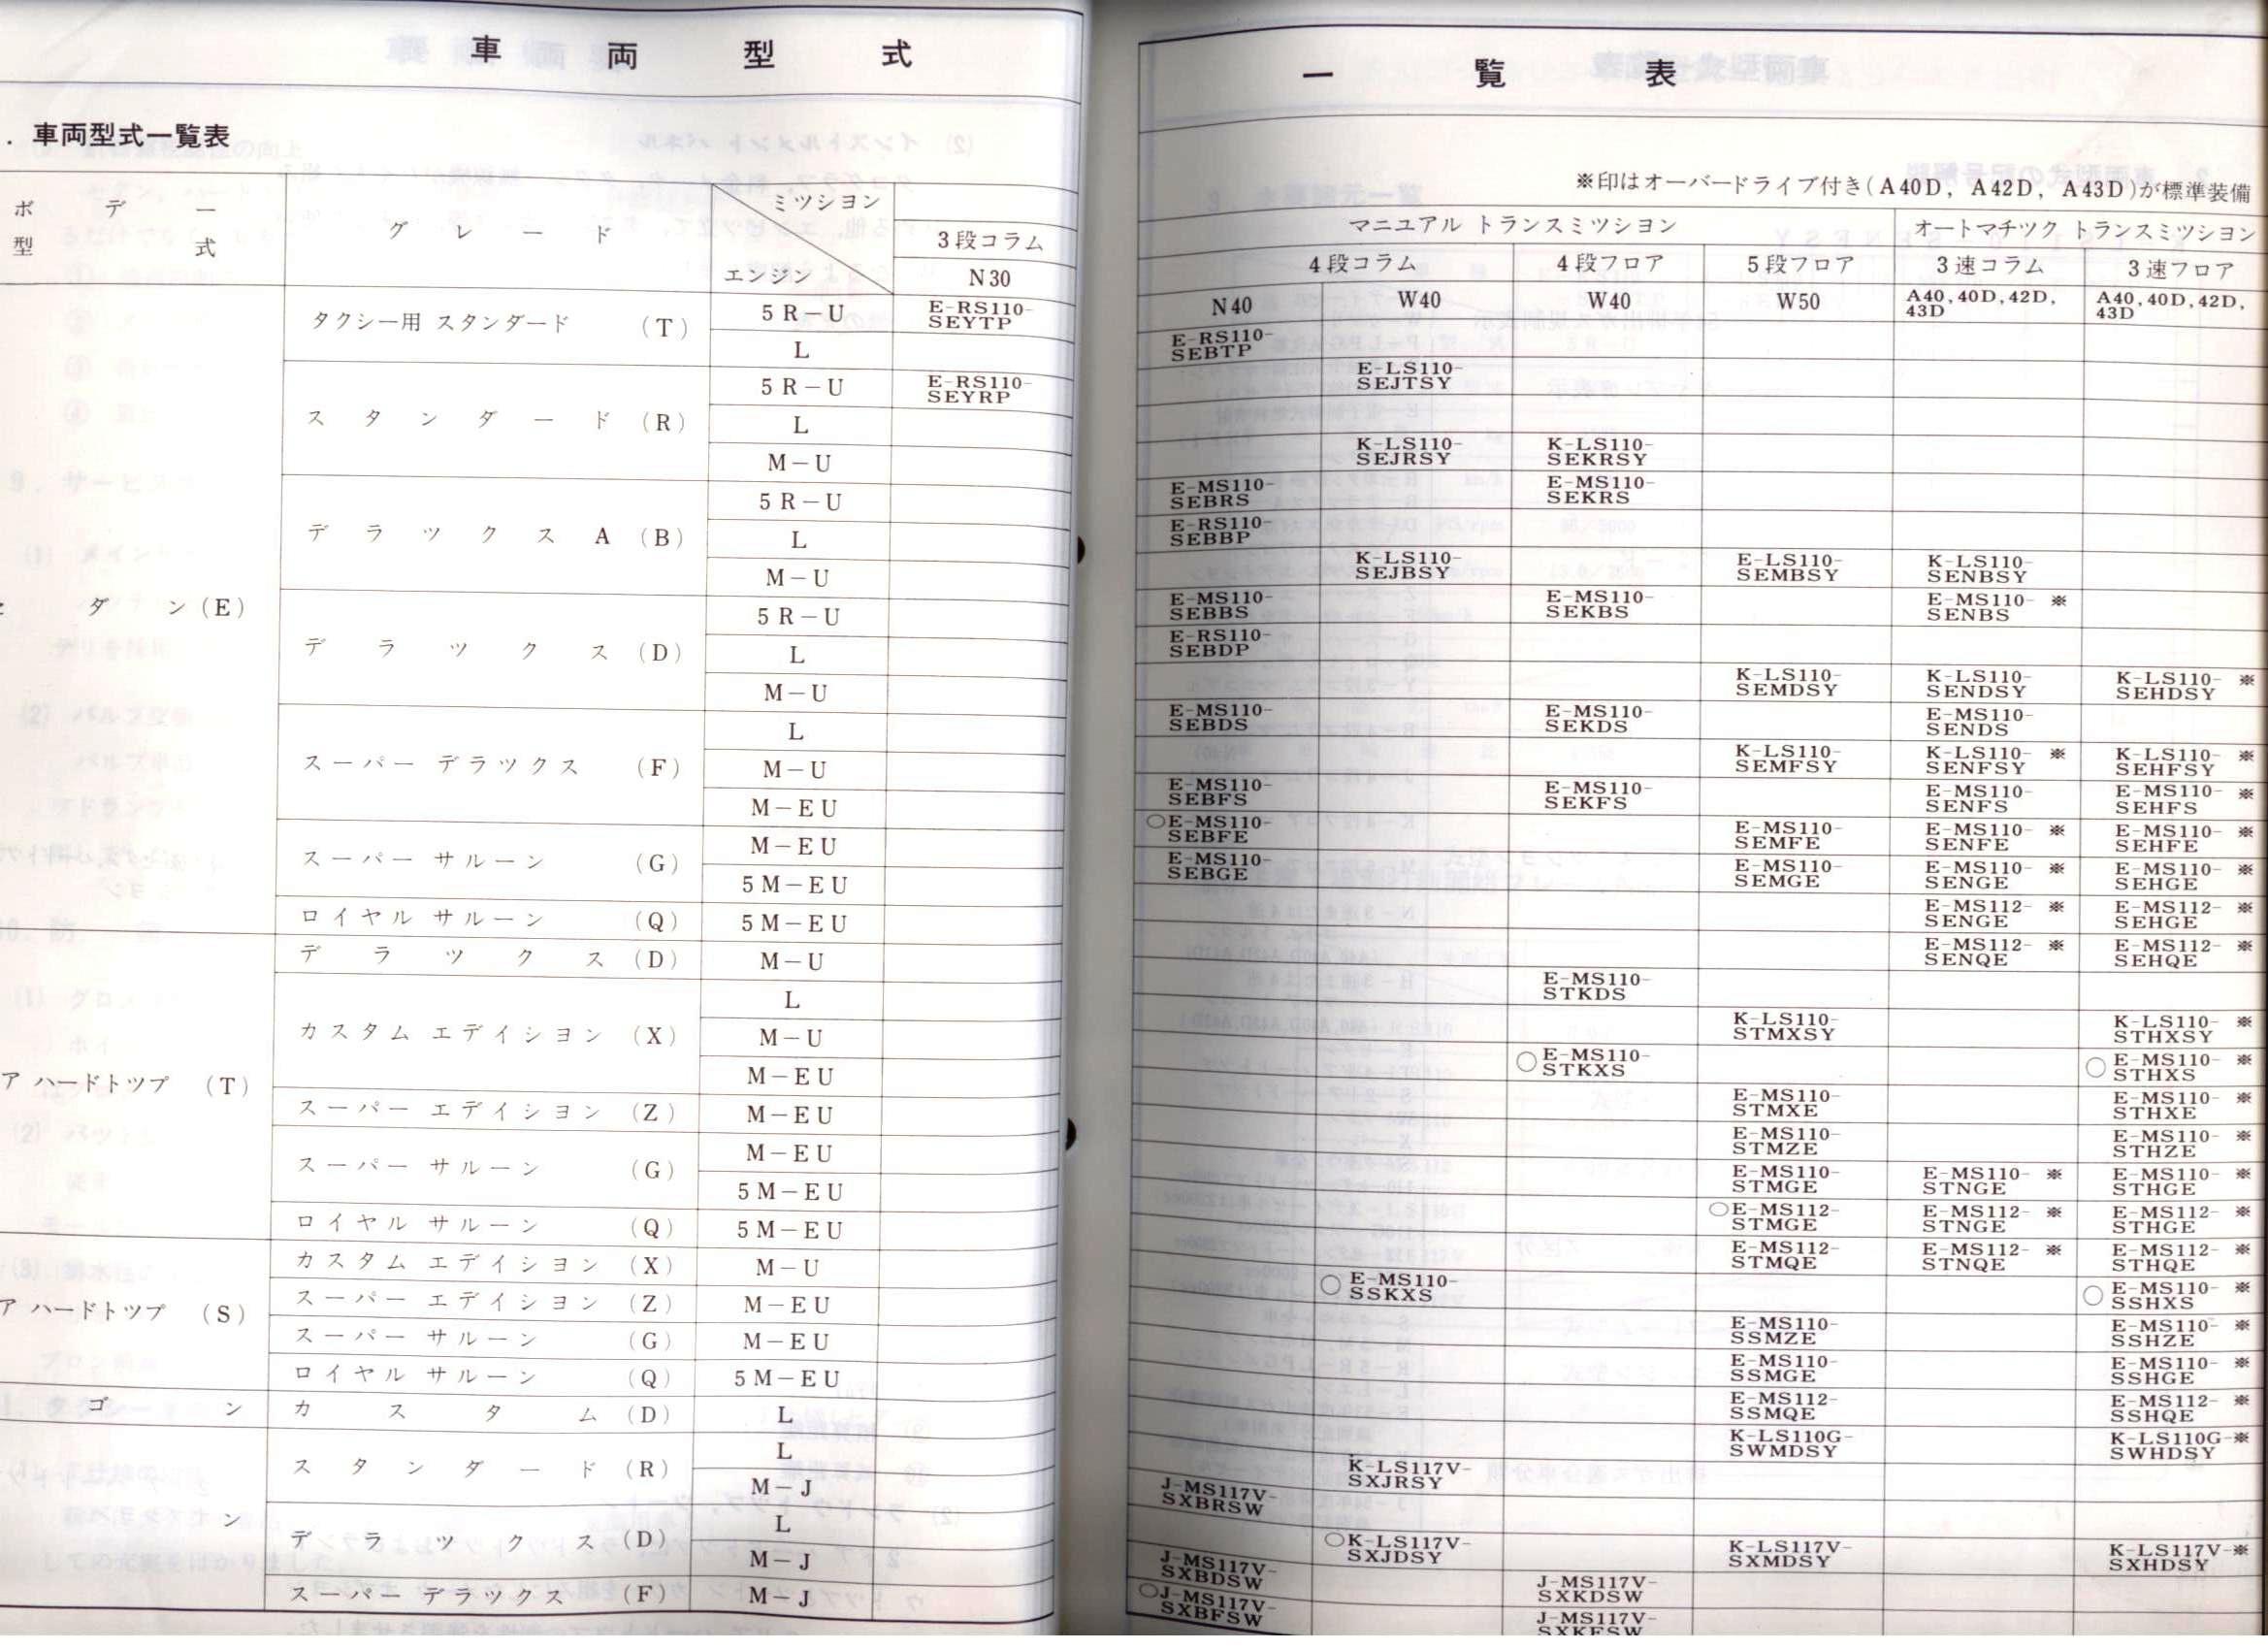 車両型式
. 車両型式一覧表
ボデー
型式
グレード
ミツシヨン
エンジン
3段コラム
N30
ダン(E)
タクシー用 スタンダード (T)
5R-U
E-RS110-
SEYTP
L
スタンダード (R)
5R-U
E-RS110-
SEYRP
L
M-U
デラツクスA (B)
5R-U
L
M-U
デラツクス (D)
5R-U
L
M-U
スーパー デラツクス (F)
L
M-U
M-EU
スーパー サルーン (G)
M-EU
5M-EU
ロイヤル サルーン (Q)
5M-EU
ア ハードトツプ (T)
デラツクス (D)
M-U
カスタム エデイシヨン (X)
L
M-U
M-EU
スーパー エデイシヨン (Z)
M-EU
スーパー サルーン (G)
M-EU
5M-EU
ロイヤル サルーン (Q)
5M-EU
ア ハードトツプ (S)
カスタム エデイシヨン (X)
M-U
スーパー エデイシヨン (Z)
M-EU
スーパー サルーン (G)
M-EU
ロイヤル サルーン (Q)
5M-EU
ゴン
カスタム (D)
L
ン
スタンダード (R)
L
M-J
デラツクス (D)
L
M-J
スーパー デラツクス (F)
M-J
一覧表
※印はオーバードライブ付き(A40D, A42D, A43D)が標準装備
マニユアル トランスミツシヨン
オートマチツク トランスミツシヨン
4段コラム
4段フロア
5段フロア
3速コラム
3速フロア
N40
W40
W40
W50
A40,40D,42D,
43D
A40,40D,42D,
43D
E-RS110-
SEBTP
E-LS110-
SEJTSY
K-LS110-
SEJRSY
K-LS110-
SEKRSY
E-MS110-
SEBRS
E-MS110-
SEKRS
E-RS110-
SEBBP
K-LS110-
SEJBSY
E-LS110-
SEMBSY
K-LS110-
SENBSY
E-MS110-
SEBBS
E-MS110-
SEKBS
E-MS110- ※
SENBS
E-RS110-
SEBDP
K-LS110-
SEMDSY
K-LS110-
SENDSY
K-LS110- ※
SEHDSY
E-MS110-
SEBDS
E-MS110-
SEKDS
E-MS110-
SENDS
K-LS110-
SEMFSY
K-LS110- ※
SENFSY
K-LS110- ※
SEHFSY
E-MS110-
SEBFS
E-MS110-
SEKFS
E-MS110-
SENFS
E-MS110- ※
SEHFS
○E-MS110-
SEBFE
E-MS110-
SEMFE
E-MS110- ※
SENFE
E-MS110- ※
SEHFE
E-MS110-
SEBGE
E-MS110-
SEMGE
E-MS110- ※
SENGE
E-MS110- ※
SEHGE
E-MS112- ※
SENGE
E-MS112- ※
SEHGE
E-MS112- ※
SENQE
E-MS112- ※
SEHQE
E-MS110-
STKDS
K-LS110-
STMXSY
K-LS110- ※
STHXSY
○E-MS110-
STKXS
○E-MS110- ※
STHXS
E-MS110-
STMXE
E-MS110- ※
STHXE
E-MS110-
STMZE
E-MS110- ※
STHZE
E-MS110-
STMGE
E-MS110- ※
STNGE
E-MS110- ※
STHGE
○E-MS112-
STMGE
E-MS112- ※
STNGE
E-MS112- ※
STHGE
E-MS112-
STMQE
E-MS112- ※
STNQE
E-MS112- ※
STHQE
○E-MS110-
SSKXS
○E-MS110- ※
SSHXS
E-MS110-
SSMZE
E-MS110- ※
SSHZE
E-MS110-
SSMGE
E-MS110- ※
SSHGE
E-MS112-
SSMQE
E-MS112- ※
SSHQE
K-LS110G-
SWMDSY
K-LS110G-※
SWHDSY
K-LS117V-
SXJRSY
J-MS117V-
SXBRSW
○K-LS117V-
SXJDSY
K-LS117V-
SXMDSY
K-LS117V-※
SXHDSY
J-MS117V-
SXBDSW
J-MS117V-
SXKDSW
○J-MS117V-
SXBFSW
J-MS117V-
SXKFSW